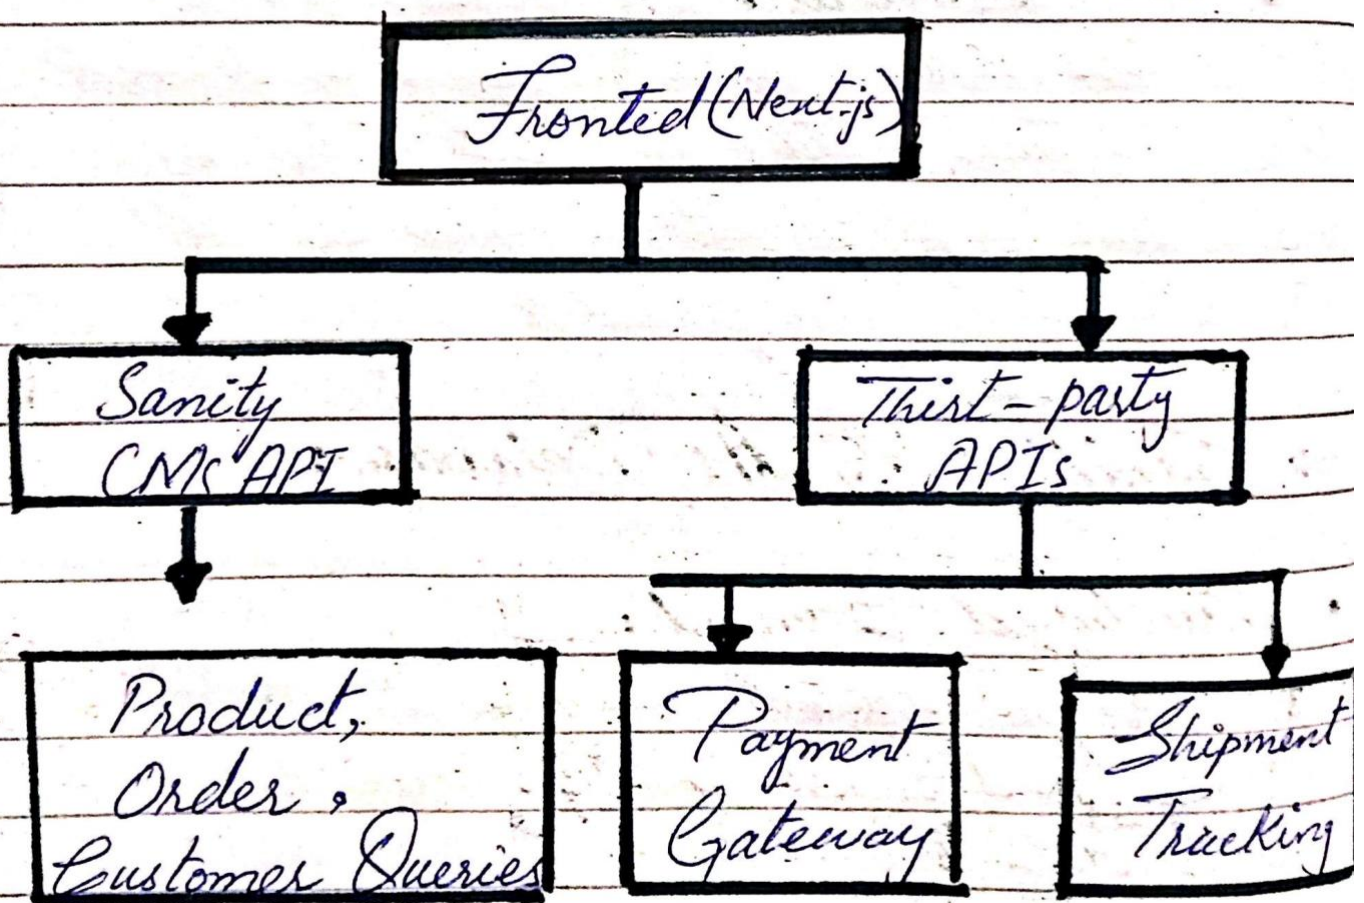 Fronted (Next.js)
Sanity
CMS API
Thirt-party
APIs
Product,
Order,
Customer Queries
Payment
Gateway
Shipment
Tracking